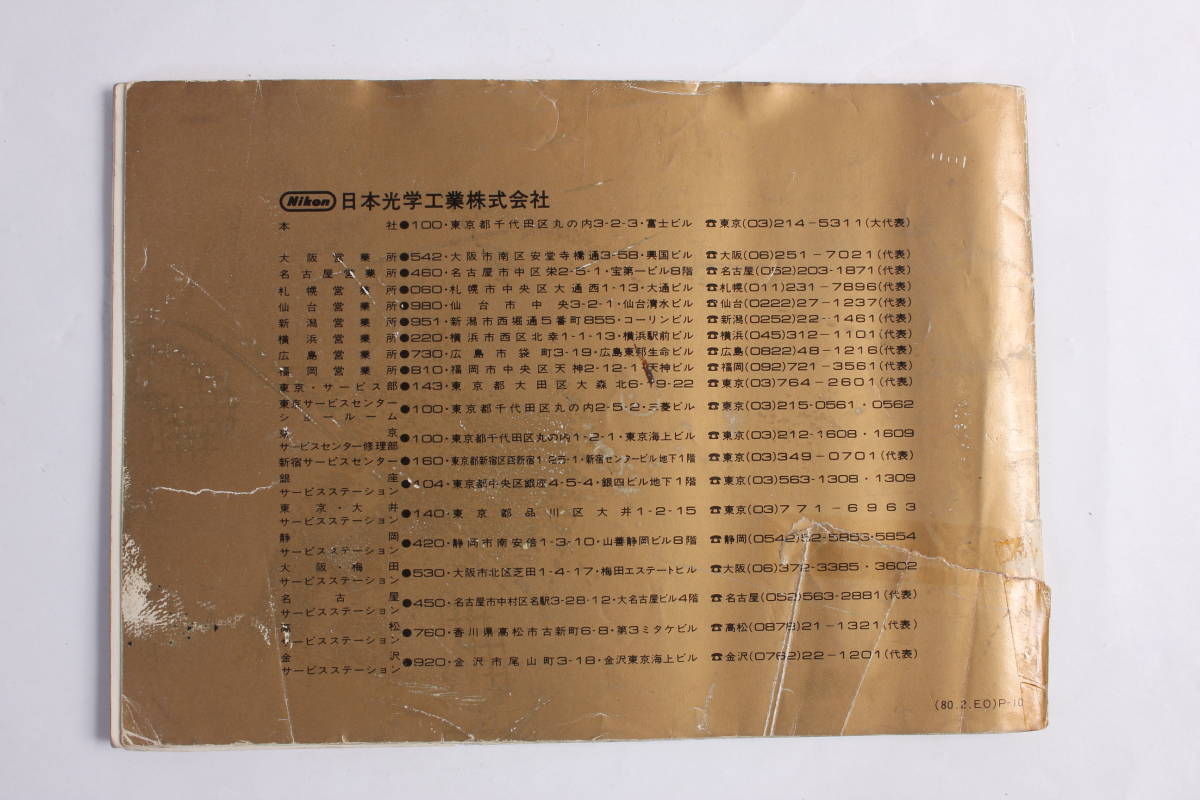 Nikon 日本光学工業株式会社
本社●100・東京都千代田区丸の内3-2-3・富士ビル ☎東京(03)214-5311(大代表)
大阪営業所●542・大阪市南区安堂寺橋通3-58・興国ビル ☎大阪(06)251-7021(代表)
名古屋営業所●460・名古屋市中区栄2-5-1・宝第一ビル8階 ☎名古屋(052)203-1871(代表)
札幌営業所●060・札幌市中央区大通西1-13・大通ビル ☎札幌(011)231-7896(代表)
仙台営業所●980・仙台市中央3-2-1・仙台清水ビル ☎仙台(0222)27-1237(代表)
新潟営業所●951・新潟市西堀通5番町855・コーリンビル ☎新潟(0252)22-1461(代表)
横浜営業所●220・横浜市西区北幸1-1-13・横浜駅前ビル ☎横浜(045)312-1101(代表)
広島営業所●730・広島市袋町3-19・広島東邦生命ビル ☎広島(0822)48-1216(代表)
福岡営業所●810・福岡市中央区天神2-12-1・天神ビル ☎福岡(092)721-3561(代表)
東京・サービス部●143・東京都大田区大森北6-19-22 ☎東京(03)764-2601(代表)
東京サービスセンター
ショールーム●100・東京都千代田区丸の内2-5-2・三菱ビル ☎東京(03)215-0561・0562
東京
サービスセンター修理部●100・東京都千代田区丸の内1-2-1・東京海上ビル ☎東京(03)212-1608・1609
新宿サービスセンター●160・東京都新宿区西新宿1-25-1・新宿センタービル地下1階 ☎東京(03)349-0701(代表)
銀座
サービスステーション●104・東京都中央区銀座4-5-4・銀四ビル地下1階 ☎東京(03)563-1308・1309
東京・大井
サービスステーション●140・東京都品川区大井1-2-15 ☎東京(03)771-6963
静岡
サービスステーション●420・静岡市南安倍1-3-10・山善静岡ビル8階 ☎静岡(0542)52-5853・5854
大阪・梅田
サービスステーション●530・大阪市北区芝田1-4-17・梅田エステートビル ☎大阪(06)372-3385・3602
名古屋
サービスステーション●450・名古屋市中村区名駅3-28-12・大名古屋ビル4階 ☎名古屋(052)563-2881(代表)
高松
サービスステーション●760・香川県高松市古新町6-8・第3ミタケビル ☎高松(0878)21-1321(代表)
金沢
サービスステーション●920・金沢市尾山町3-18・金沢東京海上ビル ☎金沢(0762)22-1201(代表)
(80.2.EO)P-10